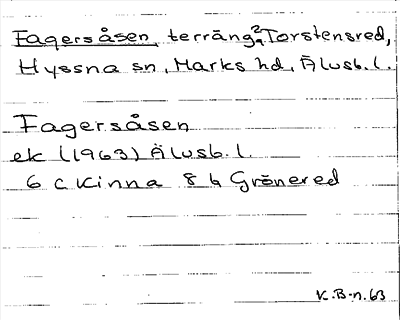 Fagersåsen, terräng, Torstensred,
Hyssna sn, Marks hd, Älvsb. l.
Fagersåsen
ek (1963) Älvsb. l.
6 c Kinna 8 h Grönered
K.B-n. 63